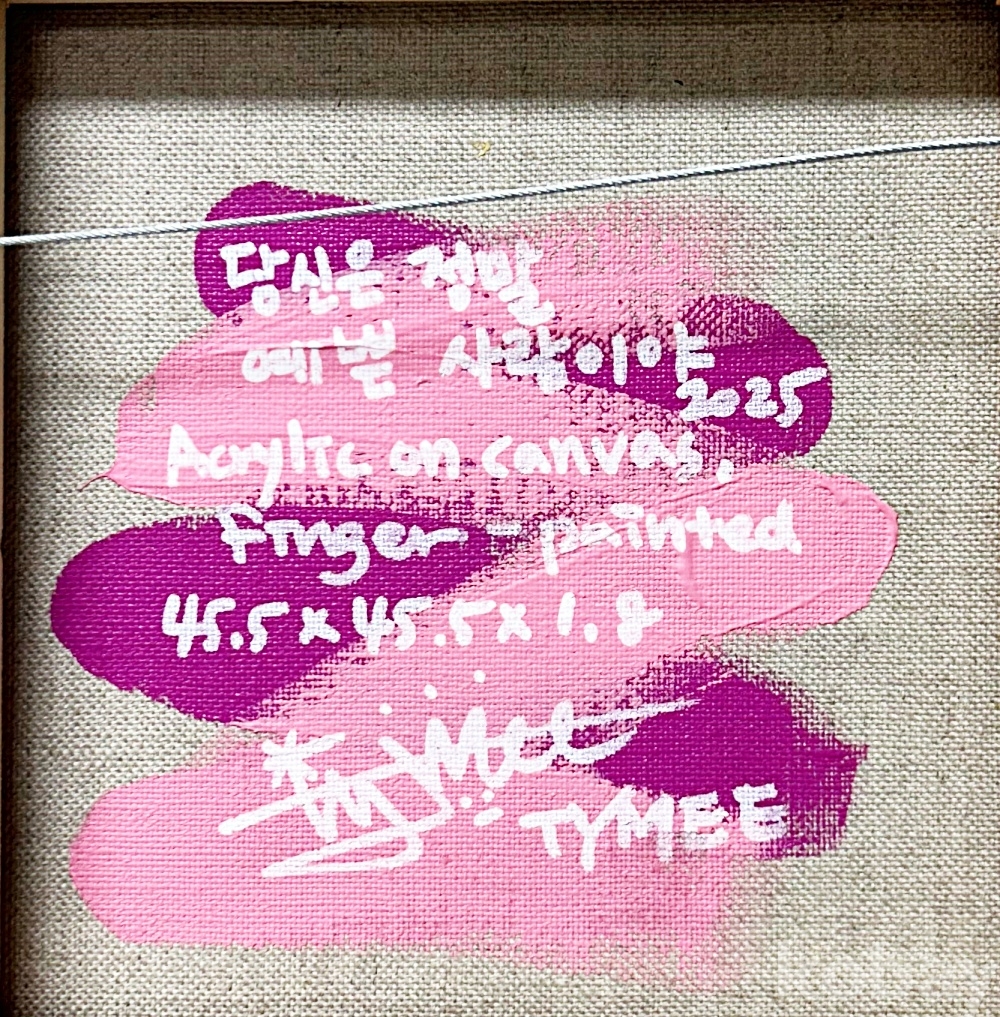 당신은 정말
예쁜 사람이야
2025
Acrylic on canvas,
Finger-painted
45.5 x 45.5 x 1.8
Tymee
TYMEE